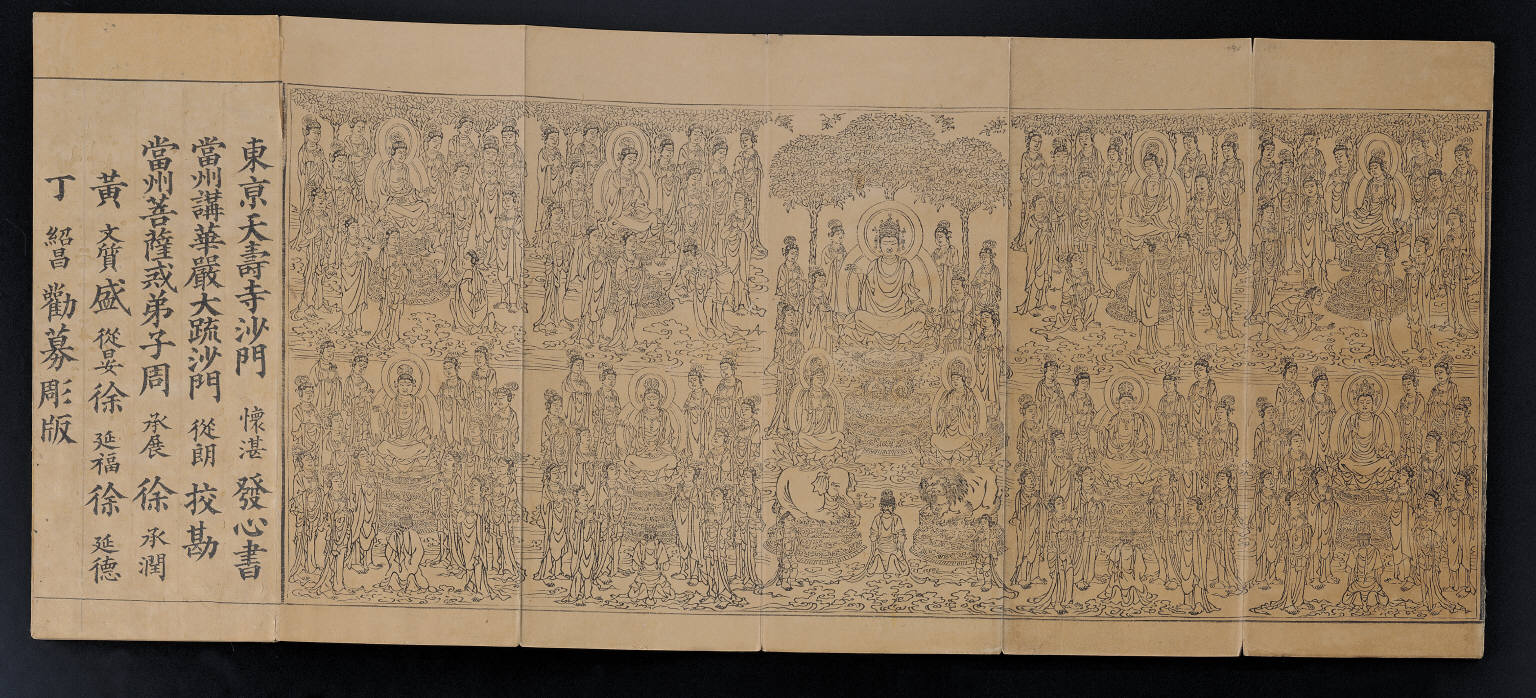 東京天壽寺沙門 懷湛 發心書
當州講華嚴大疏沙門 從朗 挍勘
當州菩薩戒弟子周 承展 徐 承潤
黃 文質 盛 從旻 徐 延福 徐 延德
丁 紹昌 勸募彫版